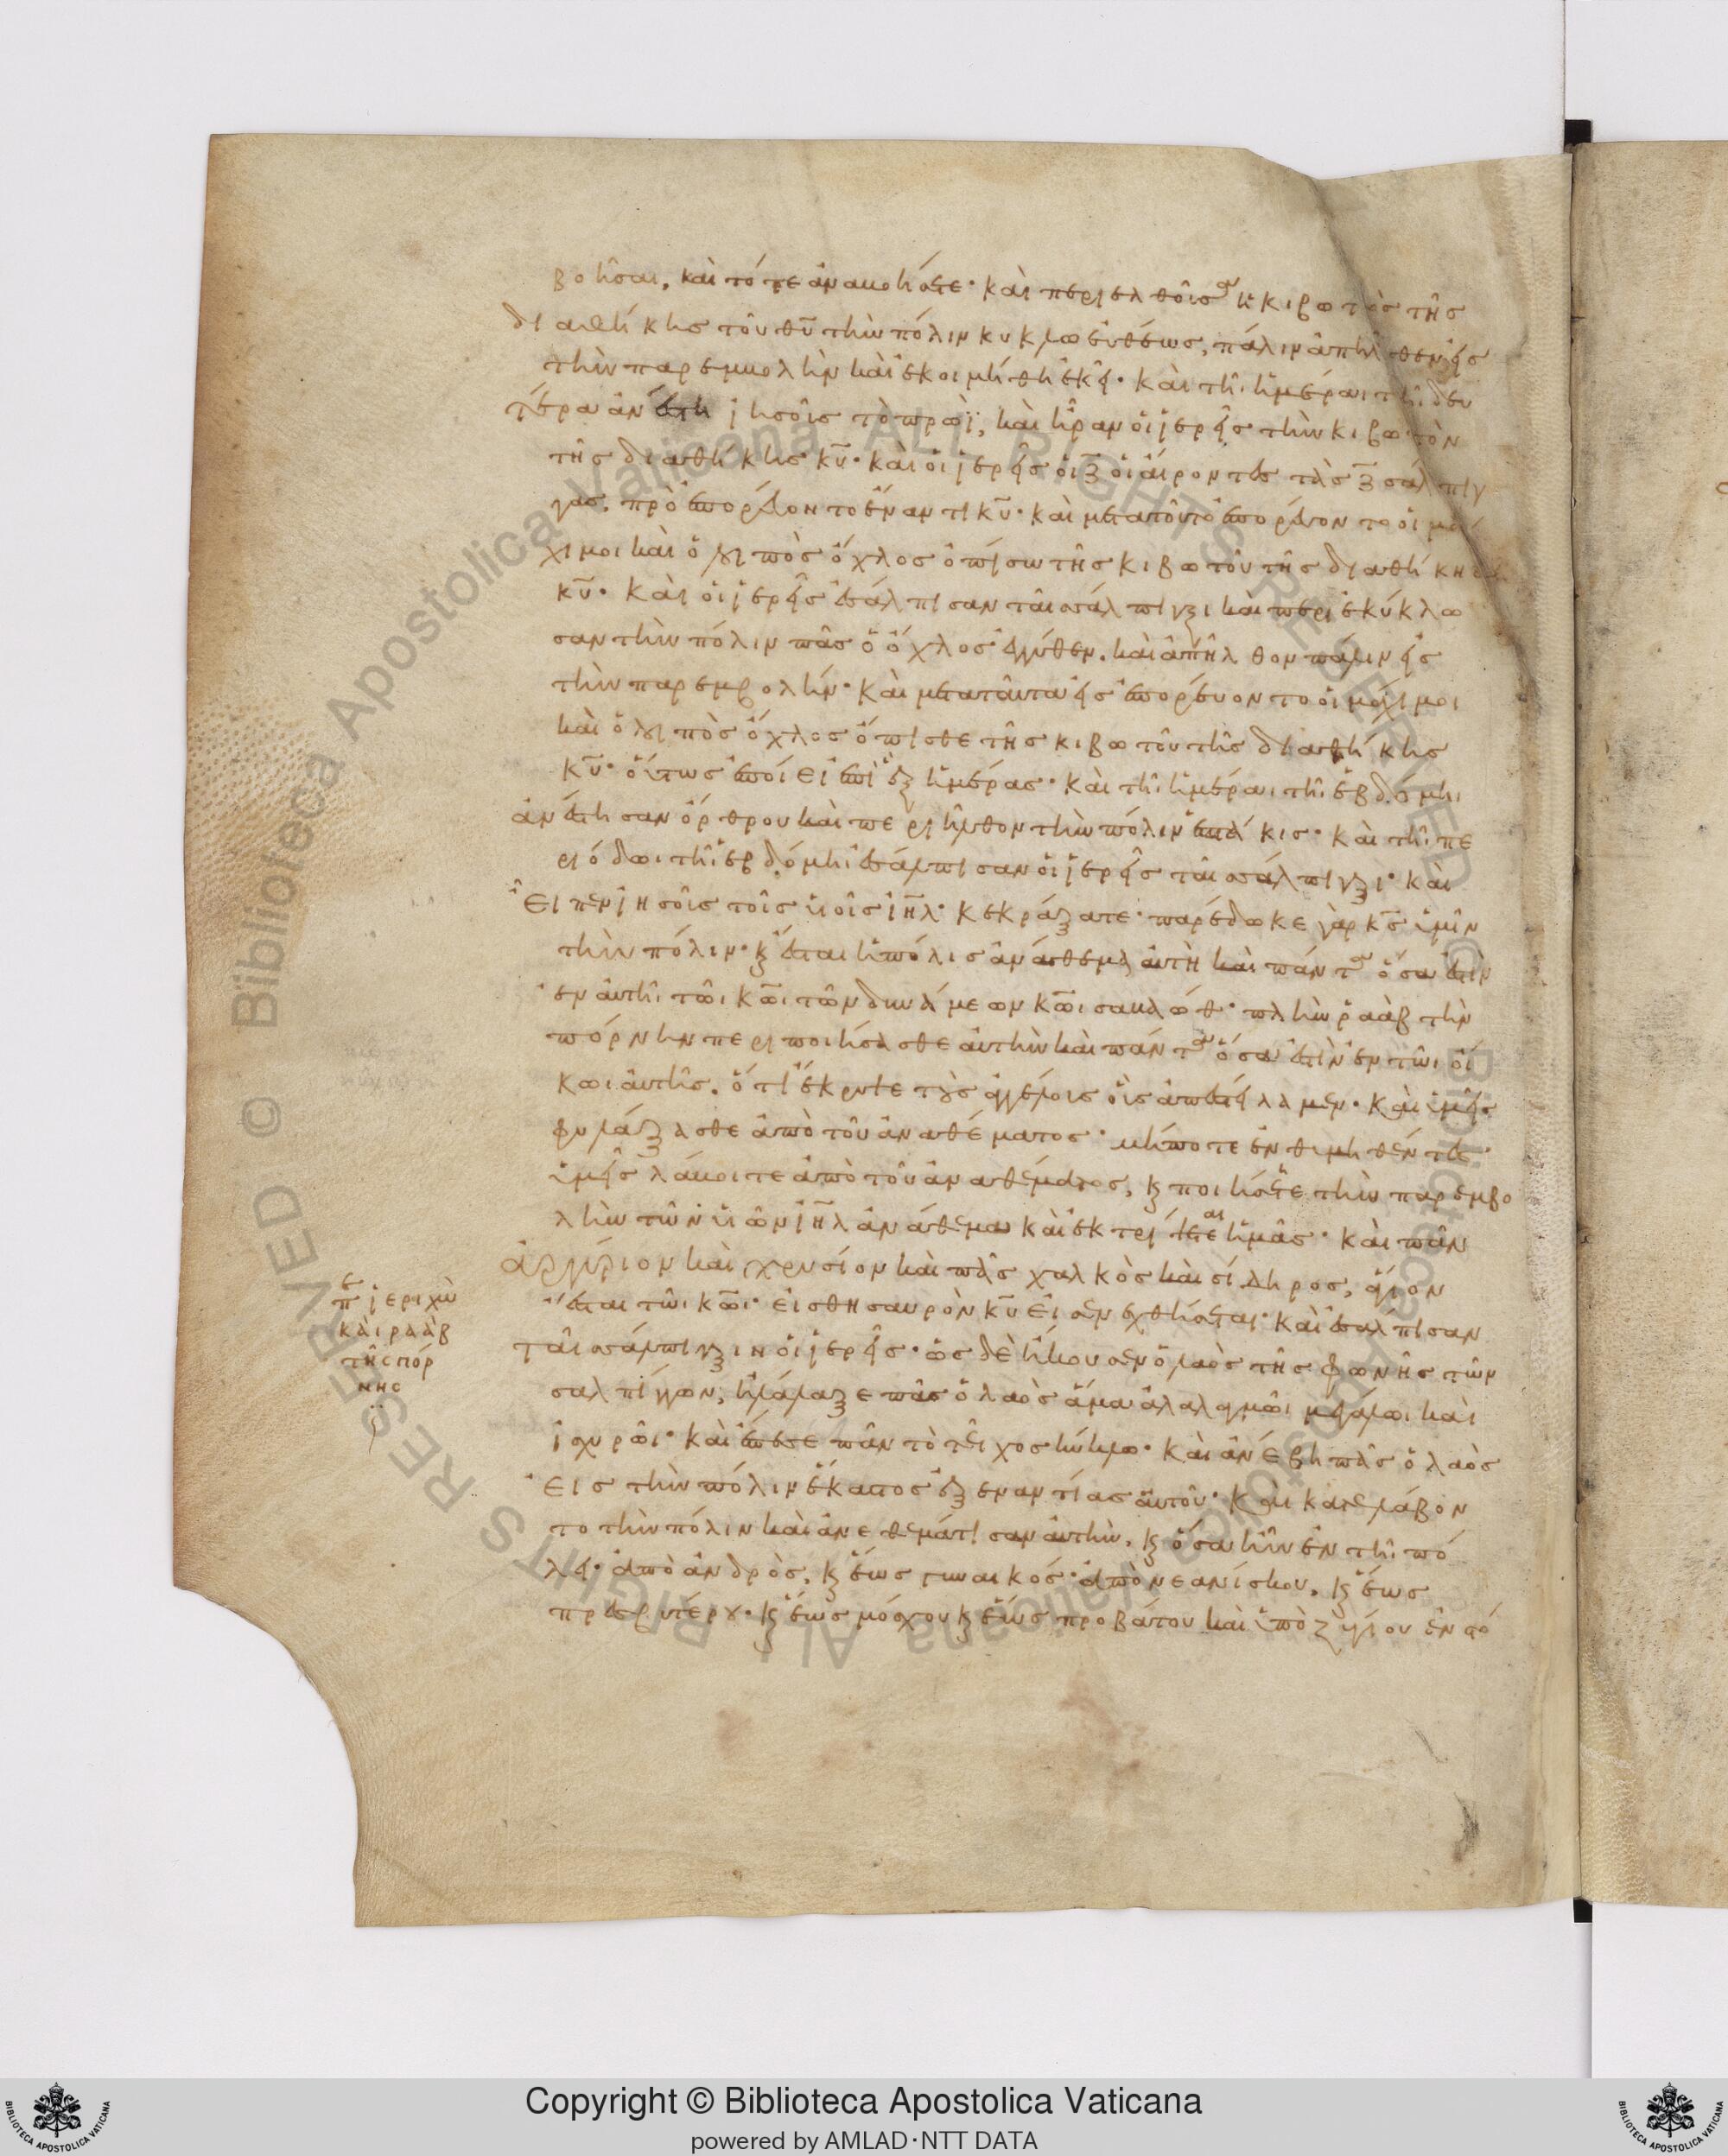 βοῆσαι, καὶ τότε ἀναβοήσετε· καὶ περιελθοῦσα ἡ κιβωτὸς τῆς
διαθήκης τοῦ θυ τὴν πόλιν κύκλω εὐθέως, πάλιν ἀπῆλθεν εἰς
τὴν παρεμβολὴν καὶ ἐκοιμήθη ἐκεῖ· καὶ τῆι ἡμέραι τῆι δευ
τέρα ἀνέστη ἰησοῦς τὸ πρωῒ, καὶ ἦραν οἱ ἱερεῖς τὴν κιβωτὸν
τῆς διαθήκης κυ· καὶ οἱ ἱερεῖς οἱ ζ οἱ αἴροντες τὰς ζ σάλπιγ
γας, προεπορεύοντο ἐναντι κυ· καὶ μετα τοῦτο ἐπορεύοντο οἱ μά
χιμοι καὶ ὁ λοιπὸς ὄχλος ὀπίσω τῆς κιβωτοῦ τῆς διαθήκης
κυ· καὶ οἱ ἱερεῖς ἐσάλπισαν ταῖς σάλπιγξι καὶ περιεκύκλω
σαν τὴν πόλιν πᾶς ὁ ὄχλος ἐγγύθεν. καὶ ἀπῆλθον πάλιν εἰς
τὴν παρεμβολήν· καὶ μετα ταῦτα εἰσεπορεύοντο οἱ μάχιμοι
καὶ ὁ λοιπὸς ὄχλος ὄπισθε τῆς κιβωτοῦ τῆς διαθήκης
κυ· οὕτως ἐποίει ἐπὶ ἓξ ἡμέρας· καὶ τῆι ἡμέραι τῆι ἑβδόμηι
ἀνέστησαν ὄρθρου καὶ περιῆλθον τὴν πόλιν ἑπτάκις· καὶ τῆι πε
ριόδωι τῆι ἑβδόμηι ἐσάλπισαν οἱ ἱερεῖς ταῖς σάλπιγξι· καὶ
εἶπεν ἰησοῦς τοῖς υἱοῖς ιηλ· κεκράξατε· παρέδωκε γὰρ κς ὑμῖν
τὴν πόλιν· κ ἔσται ἡ πόλις ἀνάθεμα αὐτὴ καὶ πάντα ὅσα ἐστὶν
ἐν αὐτῆι τῶι κωι τῶν δυνάμεων κωι σαβαώθ· πλὴν ῥαὰβ τὴν
πόρνην περιποιήσασθε αὐτὴν καὶ πάντα ὅσα ἐστὶν ἐν τῶι οἴ
κωι αὐτῆς. ὅτι ἔκρυψε τοὺς ἀγγέλους οὓς ἀπεστείλαμεν· καὶ ὑμεῖς
φυλάξασθε ἀπὸ τοῦ ἀναθέματος· μήποτε ἐνθυμηθέντες
ὑμεῖς λάβοιτε ἀπὸ τοῦ ἀναθέματος, κ ποιήσετε τὴν παρεμβο
λὴν τῶν υἱῶν ιηλ ἀνάθεμα καὶ ἐκτρίψετε ἡμᾶς· καὶ πᾶν
ἀργύριον καὶ χρυσίον καὶ πᾶς χαλκὸς καὶ σίδηρος, ἅγιον
ἔσται τῶι κωι· εἰς θησαυρὸν κυ εἰσενεχθήσεται· καὶ ἐσάλπισαν
ταῖς σάλπιγξιν οἱ ἱερεῖς· ὡς δὲ ἤκουσεν ὁ λαὸς τῆς φωνῆς τῶν
σαλπίγγων, ἠλάλαξε πᾶς ὁ λαὸς ἅμα ἀλαλαγμῶι μεγάλωι καὶ
ἰσχυρῶι· καὶ ἔπεσε πᾶν τὸ τεῖχος κύκλω· καὶ ἀνέβη πᾶς ὁ λαὸς
εἰς τὴν πόλιν ἕκαστος ἐξ ἐναντίας αὐτοῦ· καὶ κατελάβον
το τὴν πόλιν καὶ ἀνεθεμάτισαν αὐτὴν, κ ὅσα ἦν ἐν τῆι πό
λει· ἀπὸ ἀνδρὸς, κ ἕως γυναικός· ἀπὸ νεανίσκου, κ ἕως
πρεσβυτέρου· κ ἕως μόσχου κ ἕως προβάτου καὶ ὑποζυγίου ἐν στό
πε ἱεριχὼ
καὶ ραὰβ
τῆς πόρ
νης
Copyright © Biblioteca Apostolica Vaticana
powered by AMLAD·NTT DATA